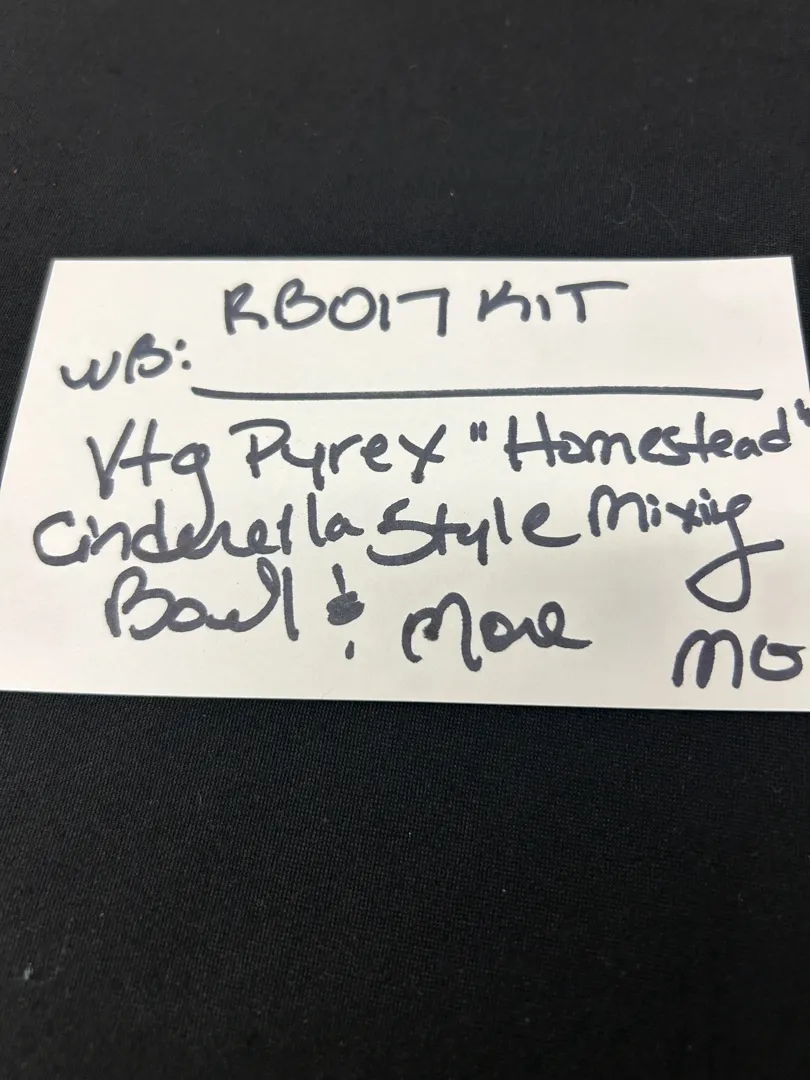 RB017 KIT
WB:
Vtg Pyrex "Homestead"
Cinderella Style Mixing
Bowl & More
MO